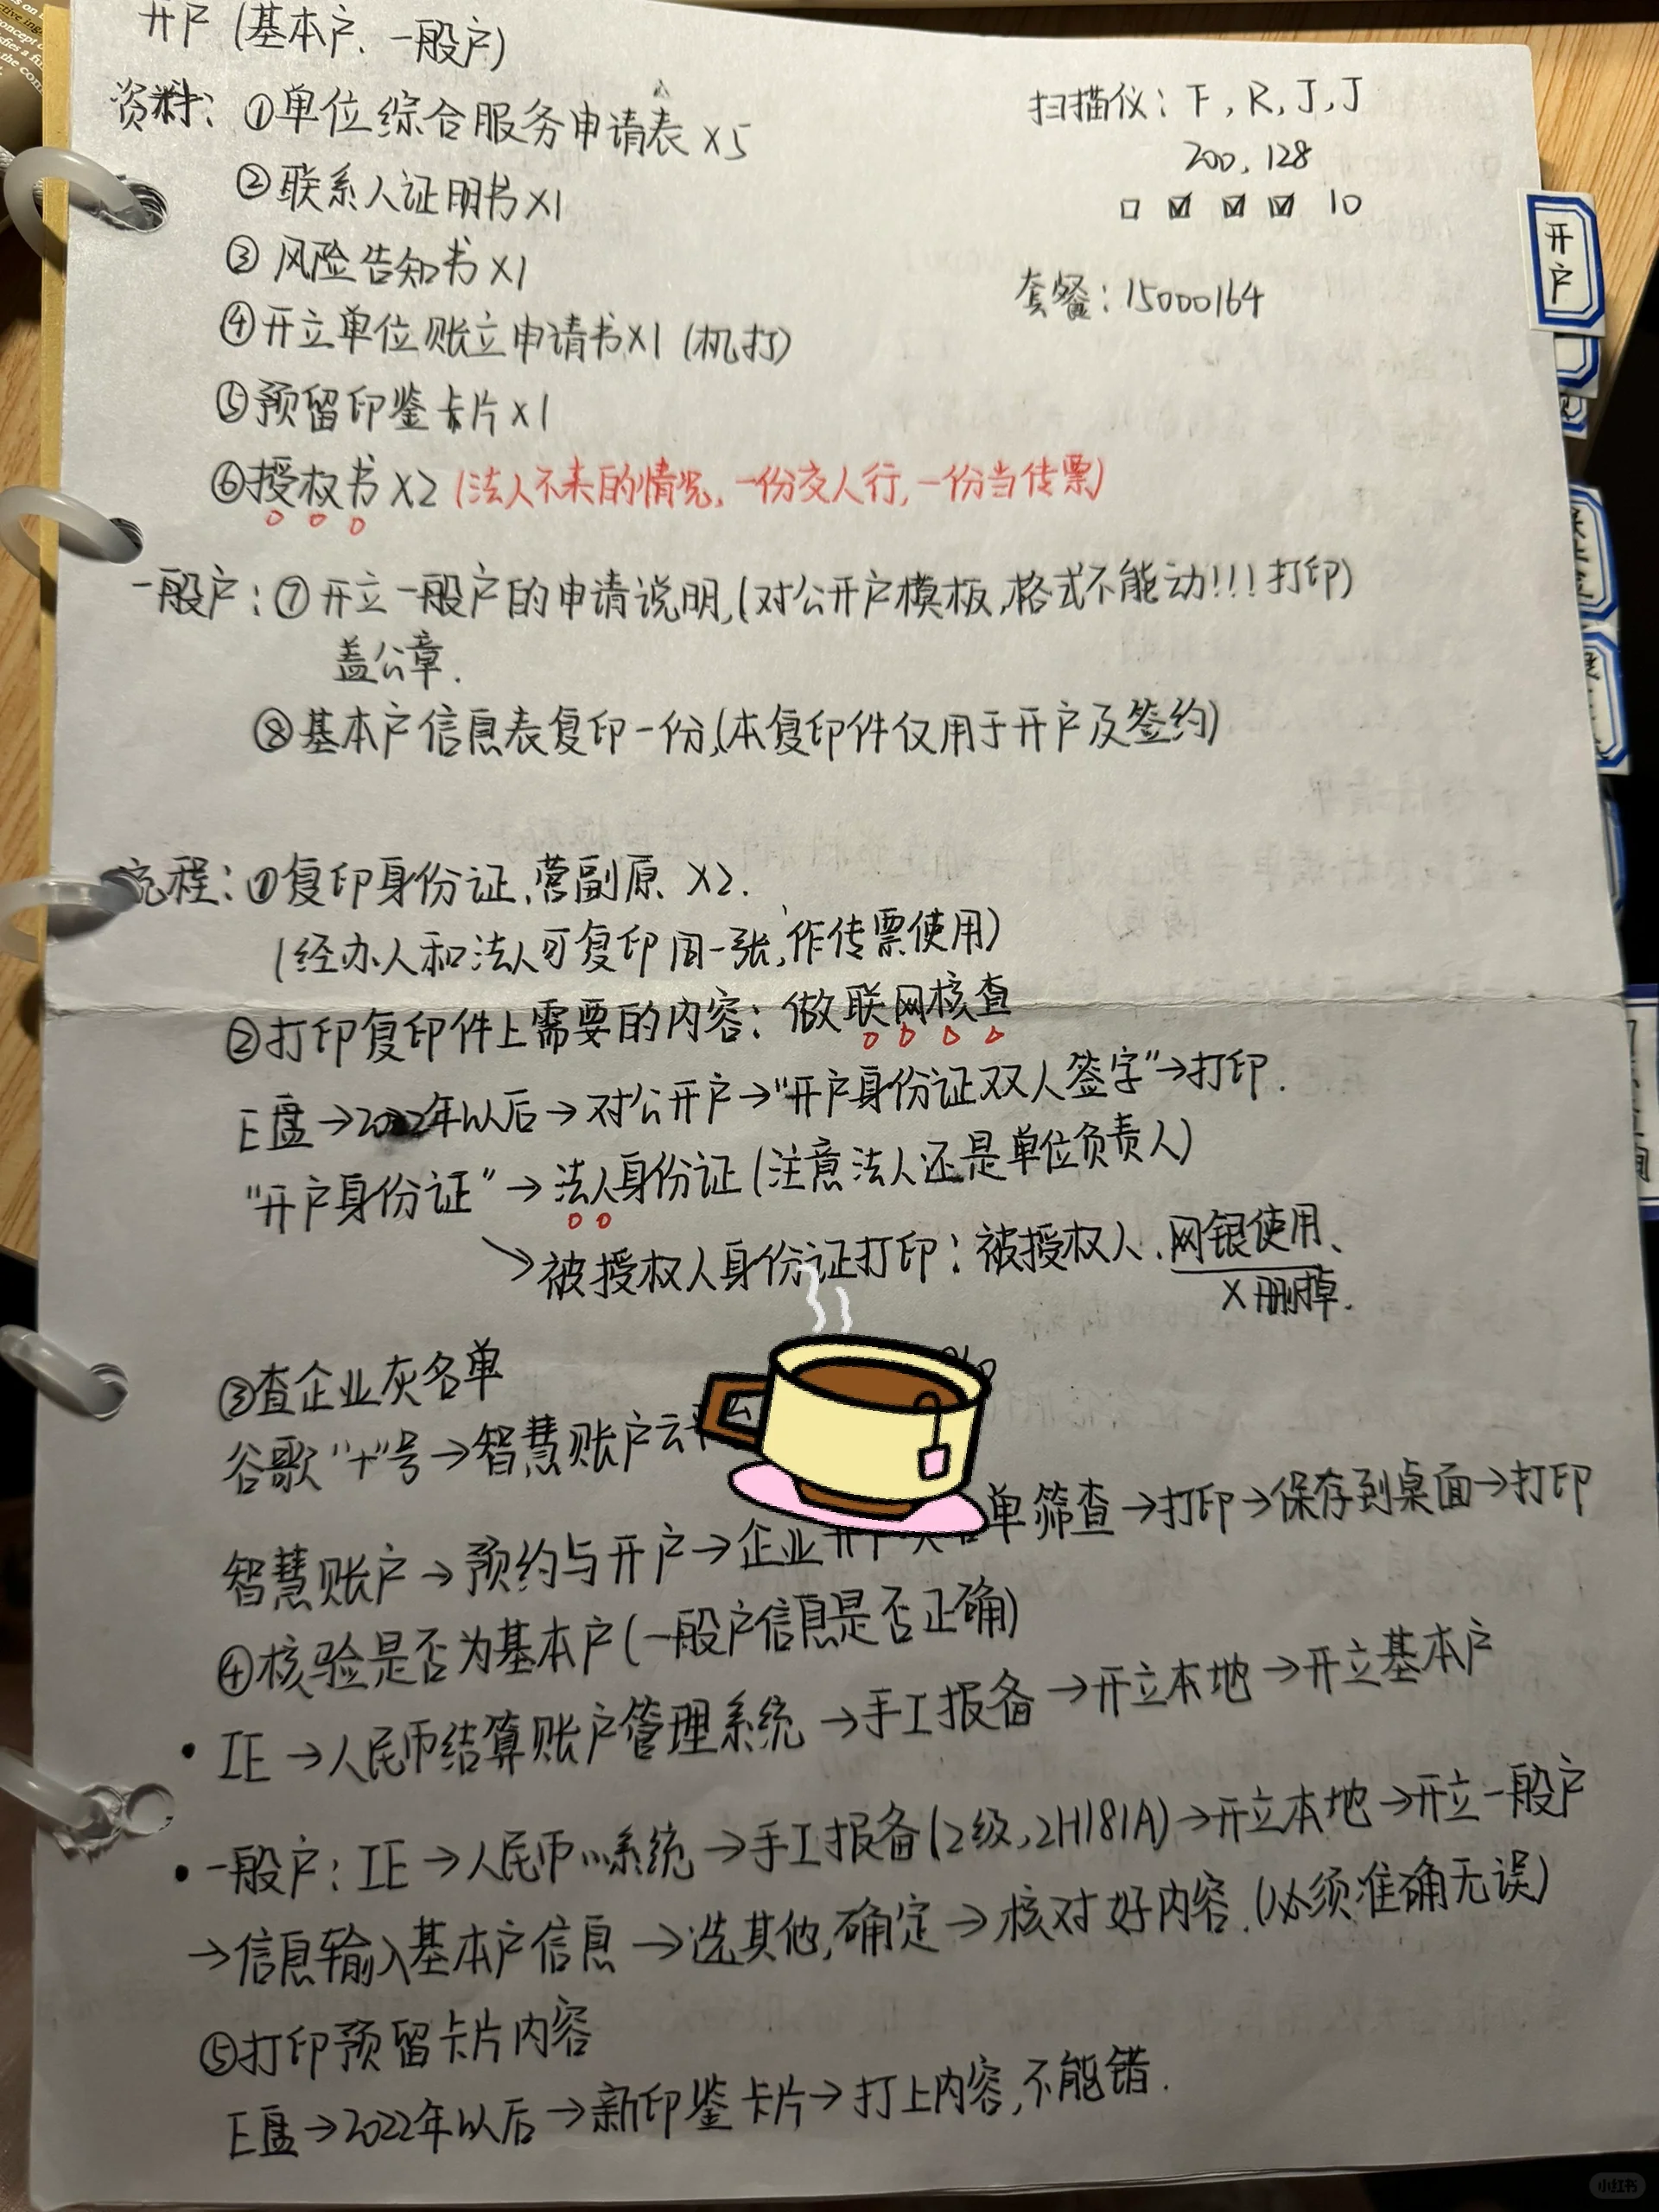 开户(基本户、一般户)
资料: ①单位综合服务申请表 ×5
②联系人证明书×1
③风险告知书×1
④开立单位账立申请书×1 (机打)
⑤预留印鉴卡片×1
⑥授权书×2 (法人不来的情况, 一份交人行, 一份当传票)
扫描仪: F, R, J, J
200, 128
□ ☑ ☑ ☑ 10
套餐: 15000164
开户
一般户: ⑦开立一般户的申请说明,(对公开户模板,格式不能动!!! 打印)
盖公章.
⑧基本户信息表复印一份,(本复印件仅用于开户及签约)
流程: ①复印身份证、营副原 ×2.
(经办人和法人可复印同一张,作传票使用)
②打印复印件上需要的内容: 做联网核查
E盘→2022年以后→对公开户→"开户身份证双人签字"→打印.
"开户身份证"→法人身份证(注意法人还是单位负责人)
↘被授权人身份证打印: 被授权人、网银使用、
×删掉.
③查企业灰名单
谷歌"+"号→智慧账户云平
智慧账户→预约与开户→企业开户 单筛查→打印→保存到桌面→打印
④核验是否为基本户(一般户信息是否正确)
• IE→人民币结算账户管理系统→手工报备→开立本地→开立基本户
• 一般户: IE→人民币…系统→手工报备(2级,2H181A)→开立本地→开立一般户
→信息输入基本户信息→选其他,确定→核对好内容.(必须准确无误)
⑤打印预留卡片内容
E盘→2022年以后→新印鉴卡片→打上内容,不能错.
小红书